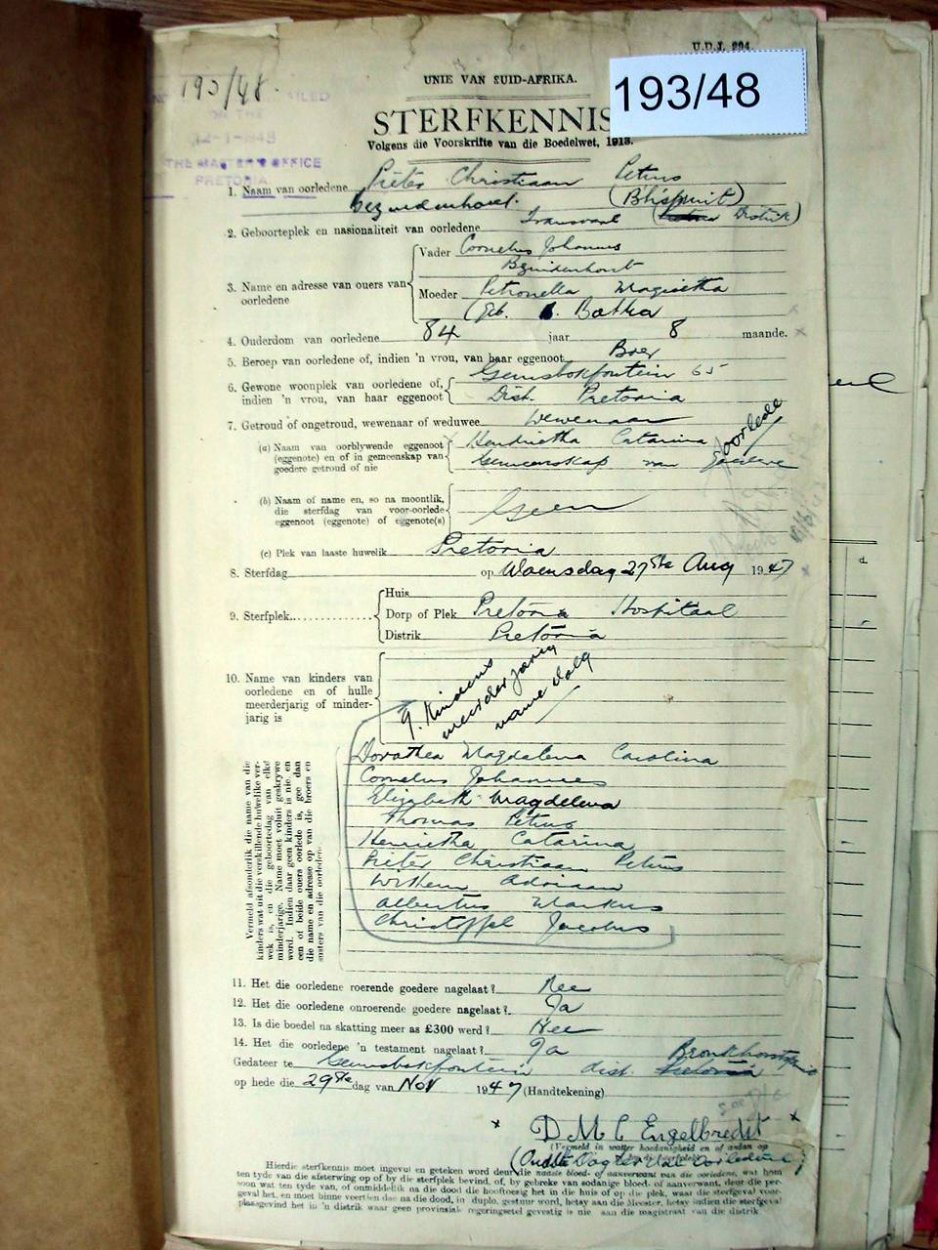 U.D.J. 294.
193/48.
193/48
UNIE VAN SUID-AFRIKA.
STERFKENNIS
Volgens die Voorskrifte van die Boedelwet, 1913.
THE MASTER'S OFFICE
PRETORIA
1. Naam van oorledene Pieter Christiaan Petrus
Bezuidenhout.
2. Geboorteplek en nasionaliteit van oorledene Transvaal
3. Name en adresse van ouers van oorledene
Vader Cornelus Johannes
Bezuidenhout
Moeder Petronella
Geb. Botha
4. Ouderdom van oorledene 84 jaar 8 maande.
5. Beroep van oorledene of, indien 'n vrou, van haar eggenoot Boer
6. Gewone woonplek van oorledene of, indien 'n vrou, van haar eggenoot
Gemsbokfontein 65
Dist. Pretoria
7. Getroud of ongetroud, wewenaar of weduwee Wewenaar
(a) Naam van oorblywende eggenoot (eggenote) en of in gemeenskap van goedere getroud of nie
Hendrietha Catarina oorlede
Gemeenskap van Goedere
(b) Naam of name en, so na moontlik, die sterfdag van voor-oorlede eggenoot (eggenote) of eggenote(s)
Geen
(c) Plek van laaste huwelik Pretoria
8. Sterfdag op Woensdag 27ste Aug 1947
9. Sterfplek
Huis
Dorp of Plek Pretoria Hospitaal
Distrik Pretoria
10. Name van kinders van oorledene en of hulle meerderjarig of minderjarig is
9. Kinders
meerderjarig
name volg
Dorothea Magdalena Carolina
Cornelus Johannes
Elizabeth Magdelena
Thomas Petrus
Henrietha Catarina
Pieter Christiaan Petrus
Willem Adriaan
Albertus Markus
Christoffel Jacobus
Vermeld afsonderlik die name van die
kinders wat uit die verskillende huwelike verwek
is, en die geboortedag van elke
minderjarige. Name moet voluit geskrywe
word. Indien daar geen kinders is nie, en
een of beide ouers oorlede is, gee dan
die name en adresse op van die broers en
susters van die oorledene.
11. Het die oorledene roerende goedere nagelaat? Nee
12. Het die oorledene onroerende goedere nagelaat? Ja
13. Is die boedel na skatting meer as £300 werd? Nee
14. Het die oorledene 'n testament nagelaat? Ja
Gedateer te Gemsbokfontein dist. Bronkhorstspruit
op hede die 29ste dag van Nov 1947 (Handtekening)
D M C Engelbrecht
(Vermeld in watter hoedanigheid en of anden op
(Oudste Dogter van Oorledene)
Hierdie sterfkennis moet ingevul en geteken word deur die naaste bloed- of aanverwant van die oorledene, wat hom
ten tyde van die afsterwing op of by die sterfplek bevind, of, by gebreke van sodanige bloed- of aanverwant, deur die per-
soon wat ten tyde van, of onmiddellik na die dood die hooftoesig het in die huis of op die plek, waar die sterfgeval voor-
geval het, en moet binne veertien dae na die dood, in duplo, gestuur word, hetsy aan die Meester, hetsy indien die sterfgeval
plaasgevind het in 'n distrik waar geen provinsiale regeringsetel gevestig is nie aan die magistraat van die distrik